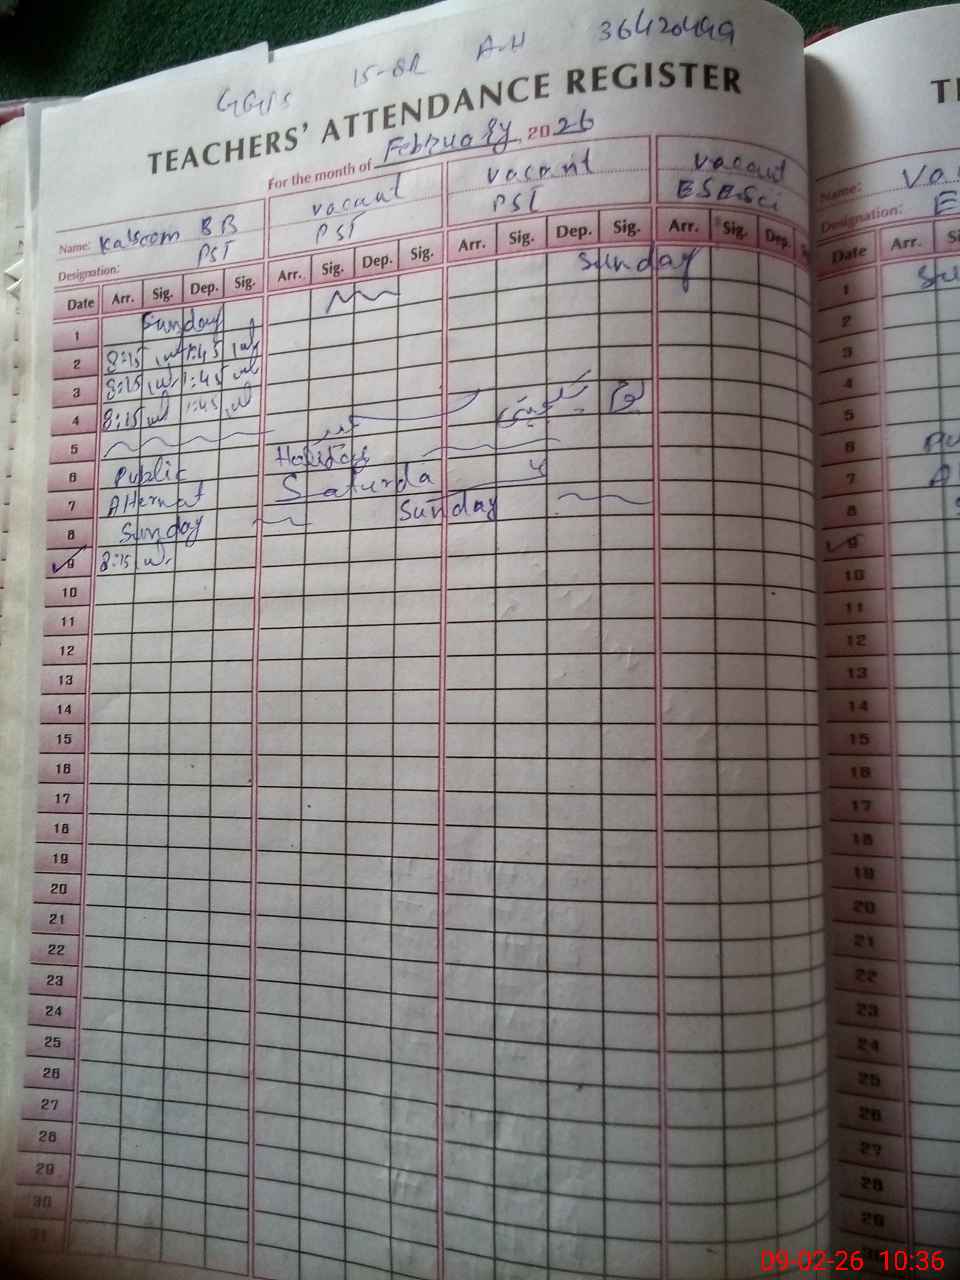 GGPS 15-8R A-H 36420449
TEACHERS' ATTENDANCE REGISTER
For the month of February, 2026
Name: Kalsoom BB vacant vacant vacant
Designation: PST PST PST ESE Sci
Date Arr. Sig. Dep. Sig. Arr. Sig. Dep. Sig. Arr. Sig. Dep. Sig. Arr. Sig. Dep.
1 Sunday Sunday
2 8:15 1:45
3 8:15 1:45
4 8:15 1:45
5
6 Public Holiday
7 Alternat Saturday
8 Sunday Sunday
9 8:15
10
11
12
13
14
15
16
17
18
19
20
21
22
23
24
25
26
27
28
29
30
31
Name: Va
Designation: E
Date Arr.
1 Su
2
3
4
5
6
7
8
9
10
11
12
13
14
15
16
17
18
19
20
21
22
23
24
25
26
27
28
29
30
09-02-26 10:36